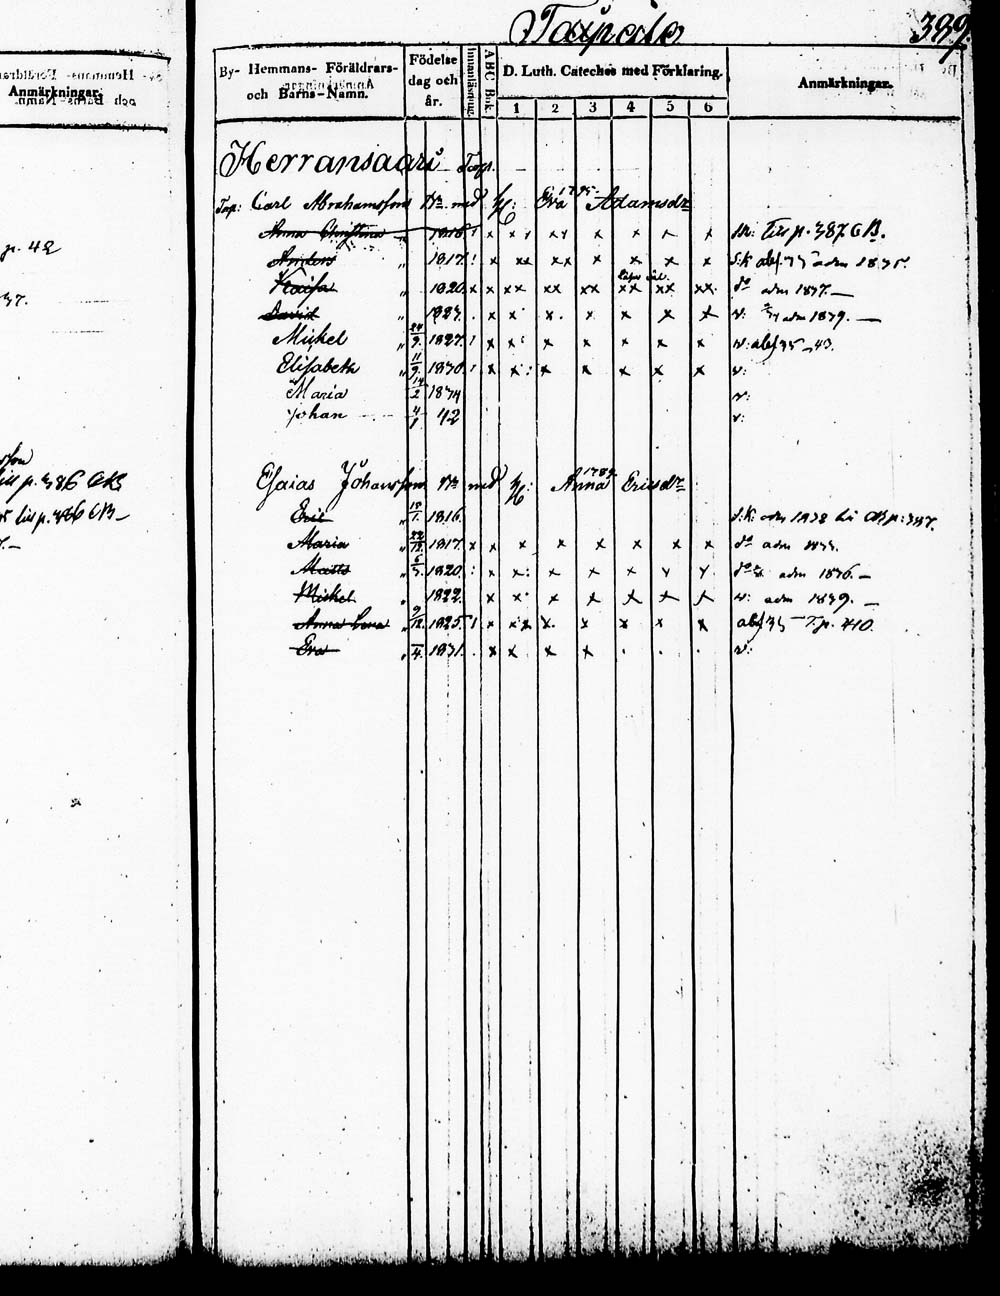 Taipale 389.
Anmärkningar.
By- Hemmans- Föräldrars- och Barns-Namn.
Födelse dag och år.
Innanläsning.
A B C Bok.
D. Luth. Cateches med Förklaring.
1 2 3 4 5 6
Anmärkningar.
Herransaari Torp.
Torp: Carl Abrahamsson med H: Eva 1795 Adamsdr
Anna Christina " 1815 x x x x x x x p. 387 CB.
Anders " 1817 x xx xx x x x x adm 1835.
Kaisa " 1820 x x xx xx xx xx xx xx do adm 1837.
David " 1823. x x x x x x x v: adm 1839.
Michel " 24/9. 1827. x x x x x x x v: abs 35-43.
Elisabeth " 11/9. 1830. x x x x x x x v:
Maria 14/2 1834 v:
Johan 4/1 42 v:
Esaias Johansson med H: Anna 1789 Ericsdr
Eric " 18/1. 1816. adm 1832 CB p: 387.
Maria " 22/12. 1817. x x x x x x x x do adm 1833.
Matts " 6/3. 1820 x x x x x x x do adm 1836.
Michel " 1822. x x x x x x x v: adm 1839.
Anna Lena " 9/12. 1825. x xx x x x x x abs 35 T. p. 410.
Eva " /4. 1831. x x x x v:
p. 42
37.
till p. 386 CB
till p. 386 CB